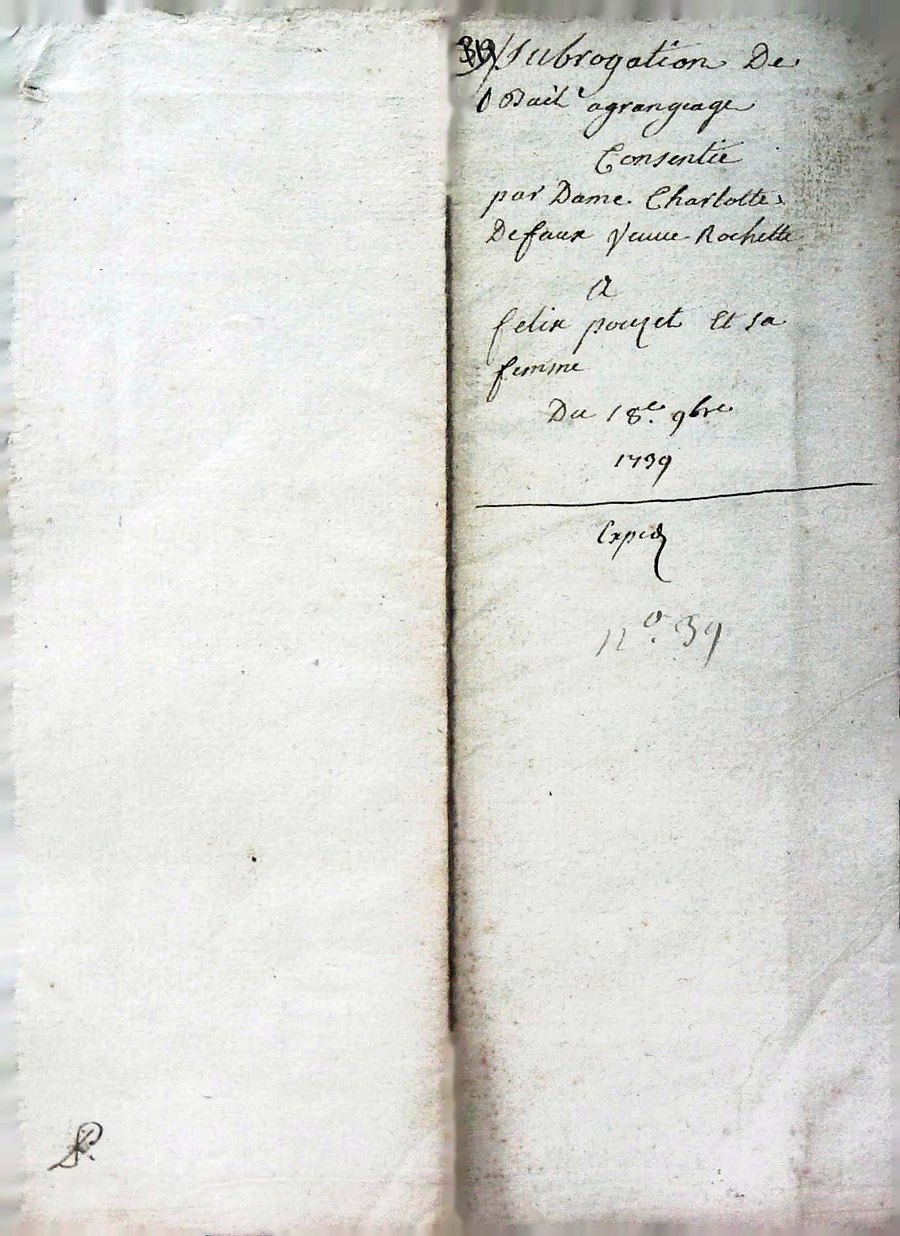 subrogation De
Bail agrangeage
Consentie
par Dame Charlotte
Defaux Veuue Rochette
A
felix pouzet Et sa
femme
Du 18e. 9bre
1739
Exped
no. 39